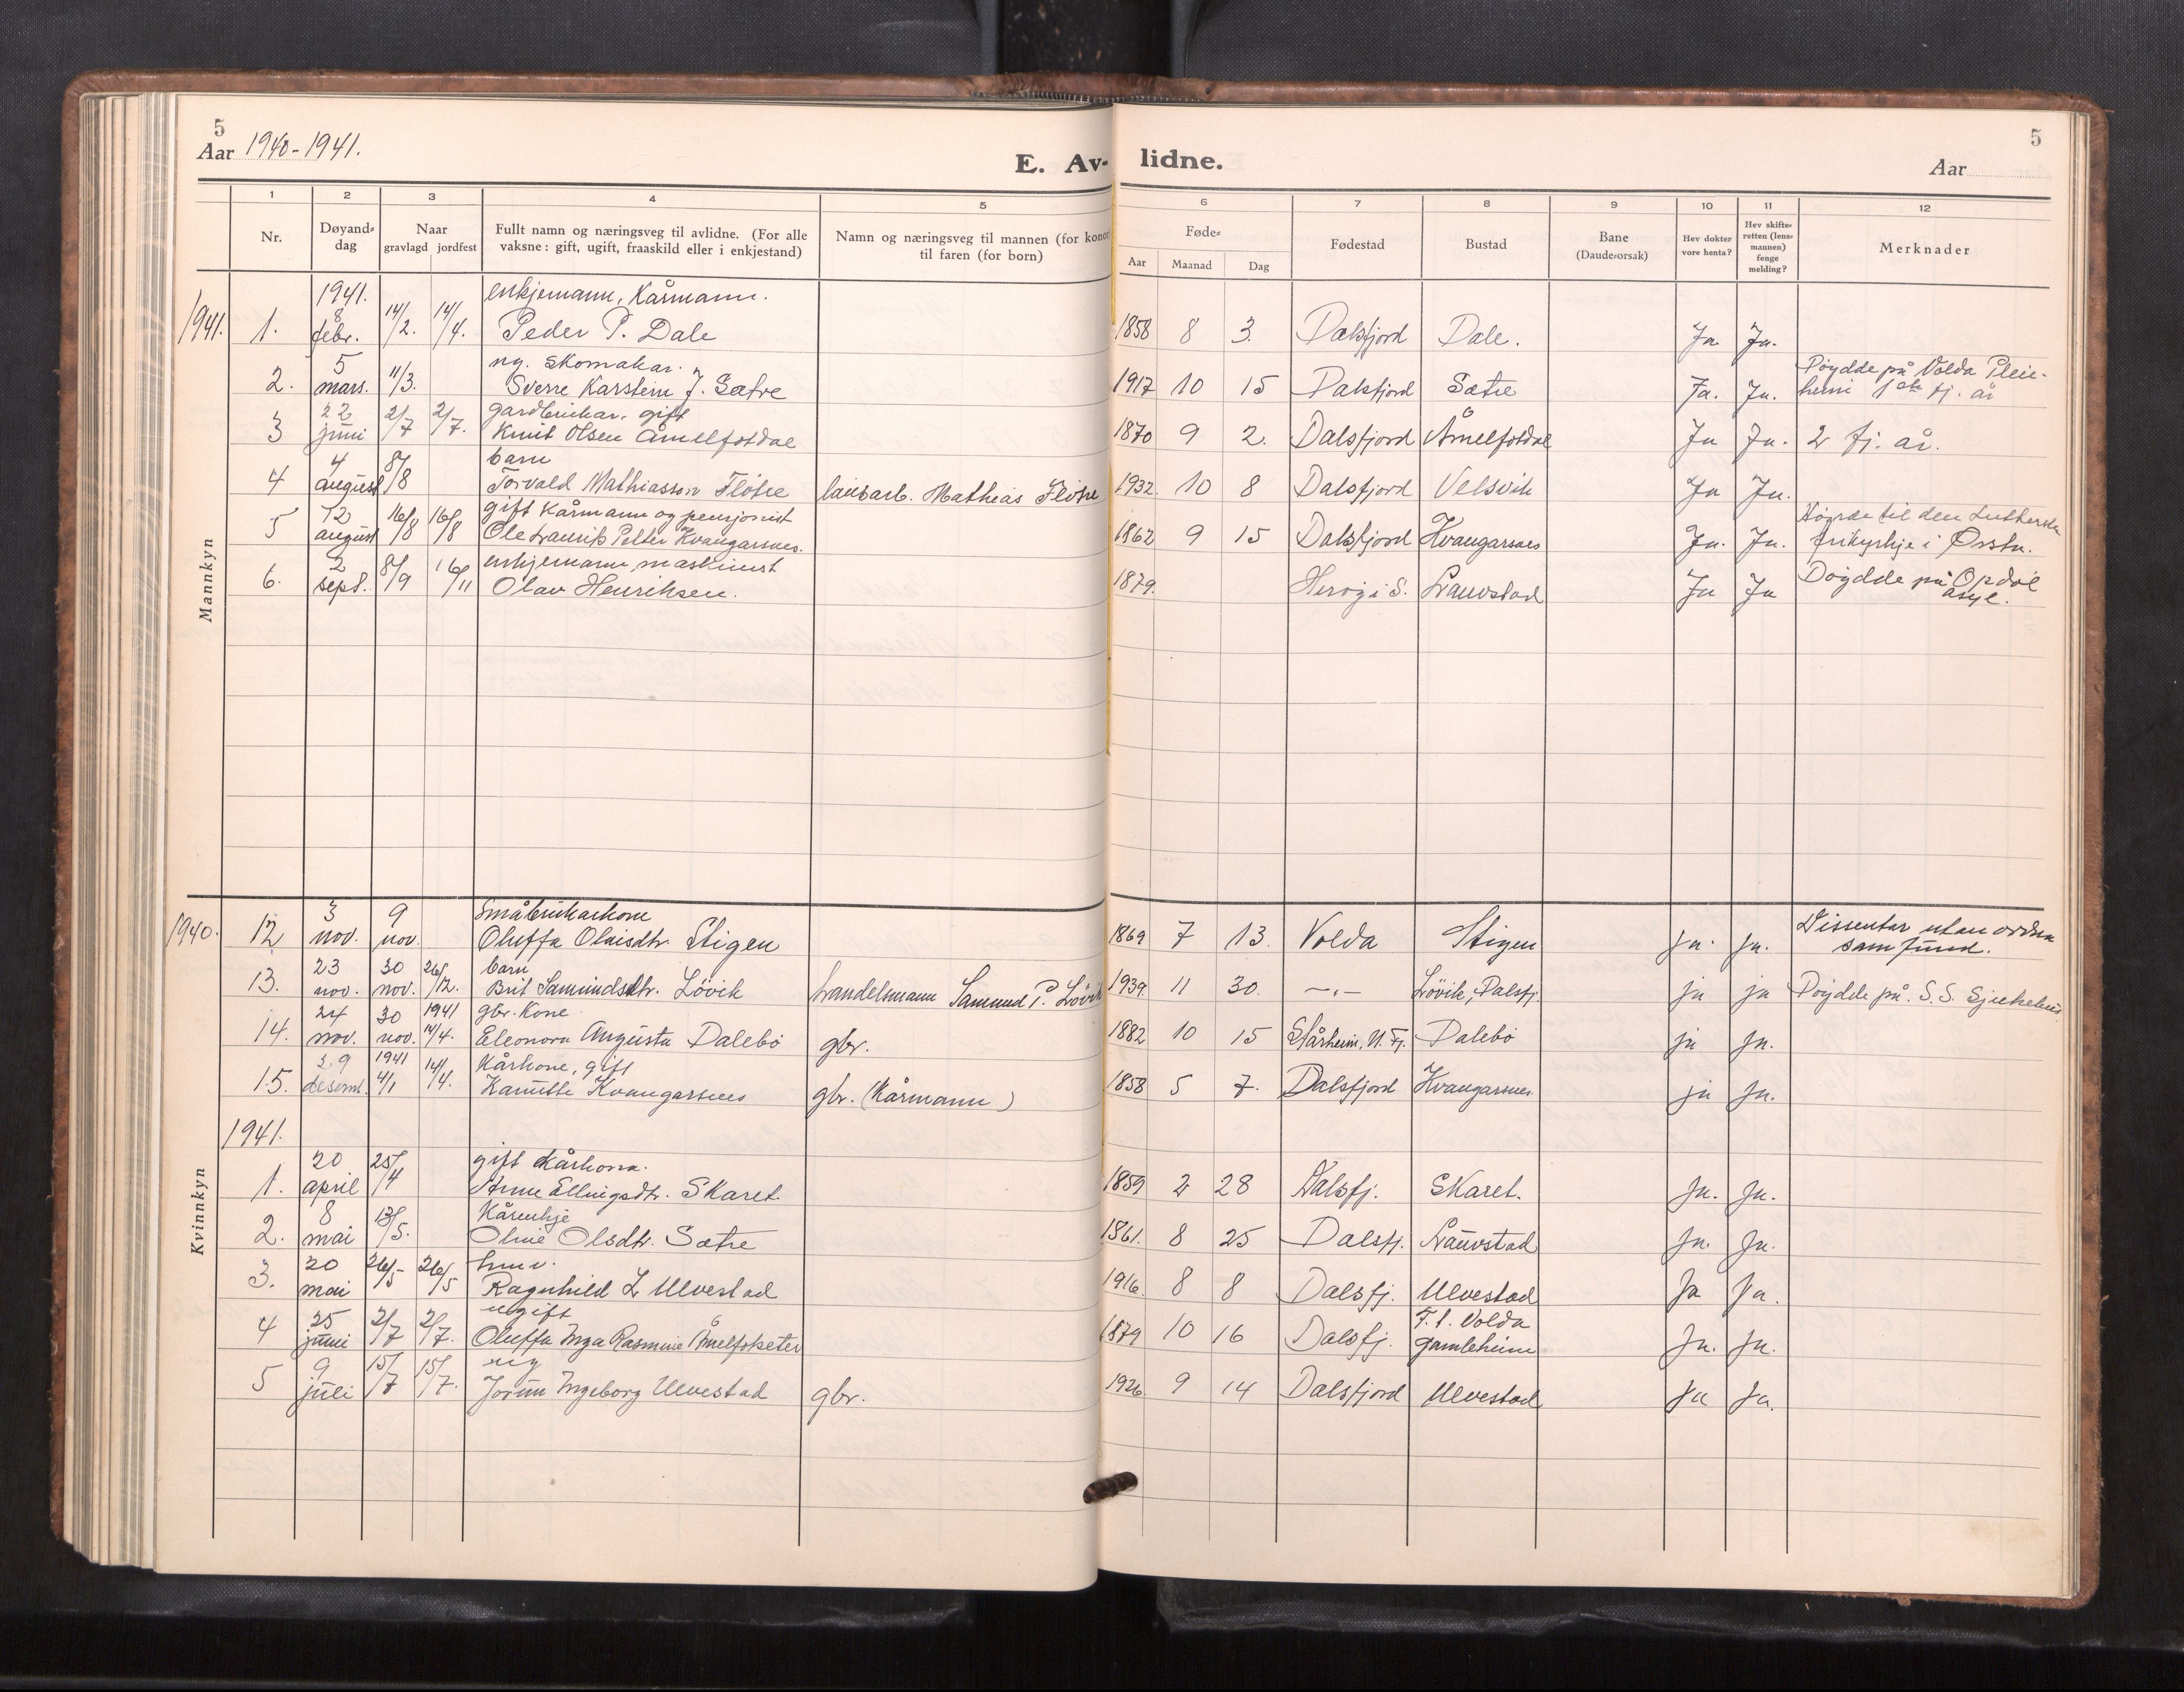 5
Aar 1940-1941.
E. Av-
lidne.
5
Aar
1 2 3 4 5 6 7 8 9 10 11 12
Nr.
Døyand-
dag
Naar
gravlagd jordfest
Fullt namn og næringsveg til avlidne. (For alle
vaksne: gift, ugift, fraaskild eller i enkjestand)
Namn og næringsveg til mannen (for konor)
til faren (for born)
Føde-
Aar Maanad Dag
Fødestad
Bustad
Bane
(Daude-orsak)
Hev dokter
vore henta?
Hev skifte-
retten (lens-
mannen)
fenge
melding?
Merknader
Mannkyn
1941. enkjemann, Kårmann.
1941. 1. 8 febr. 14/2. 14/4. Peder P. Dale 1858 8 3. Dalsfjord Dale. Ja Ja.
ug. skomakar.
2. 5 mars. 11/3. Sverre Karstein J. Sætre 1917 10 15 Dalsfjord Sætre Ja. Ja. Døydde på Volda Pleie-
heim 1 fj. år
gardbrukar. gift
3 22 juni 2/7 2/7. Knut Olsen Åmelfotdal 1870 9 2. Dalsfjord Åmelfotdal Ja Ja. 2 fj. år.
barn
4 4 august 8/8 Torvald Mathiasson Fløtre lausarb. Mathias Fløtre 1932 10 8 Dalsfjord Velsvik Ja Ja.
gift Kårmann og pensjonist
5 12 august 16/8 16/8 Ole Laurits Petter Kvangarsnes. 1862 9 15 Dalsfjord Kvangarsnes Ja. Ja. Høyrde til den Lutherske
frikyrkje i Ørsta.
enkjemann, maskinist
6. 2 sept. 8/9 16/11 Olav Henriksen. 1879. Herøy i S. Lauvstad Ja Ja Døydde på Opdøl
asyl.
Kvinnkyn
Småbrukarkone
1940. 12 3 nov. 9 nov. Oluffa Olaisdtr. Stigen 1869 7 13. Volda Stigen ja. ja. Dissentar utan ordna
samfund.
barn
13. 23 nov. 30 nov. 26/12. Brit Samundsdtr. Løvik handelsmann Samund P. Løvik 1939 11 30. —"— Løvik, Dalsfj. ja ja Døydde på S. S. Sjukehus
gbr. Kone
14. 24 nov. 30 nov. 1941 14/4. Eleonora Augusta Dalebø gbr. 1882 10 15 Stårheim, N. Fj. Dalebø ja ja.
Kårkone, gift
15. 29 desemb. 1941 4/1 14/4. Kamilla Kvangarsnes gbr. (Kårmann) 1858 5 7. Dalsfjord Kvangarsnes ja ja.
1941.
gift kårkona.
1. 20 april 25/4 Anne Ellingsdtr. Skaret. 1859 2 28 Dalsfj. Skaret. Ja. Ja.
Kårenkje
2. 8 mai 13/5. Oline Olsdtr. Sætre 1861. 8 25 Dalsfj. Lauvstad Ja. Ja.
3. 20 mai 26/5 26/5 Ragnhild L Ulvestad 1916 8 8 Dalsfj. Ulvestad Ja Ja.
ugift
4 25 juni 2/7 2/7. Oluffa Inga Rasmine Åmelfotseter 1879 10 16 Dalsfj. F. t. Volda
gamleheim Ja. Ja.
ug
5 9 juli 15/7 15/7. Jorun Ingeborg Ulvestad gbr. 1926 9 14 Dalsfjord Ulvestad Ja Ja.